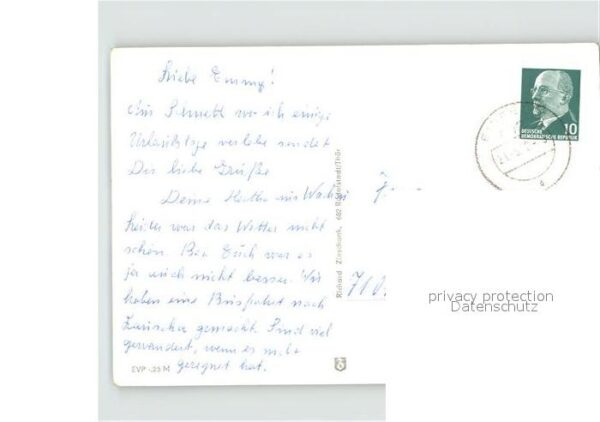 Liebe Emmy!
Aus Schmett wo ich einige
Urlaubstage verlebe sendet
Dir liebe Grüße
Deine Hertha aus
Leider war das Wetter nicht
schön. Bei Euch war es
ja auch nicht besser. Wir
haben eine Busfahrt nach
gemacht. Sind viel
gewandert, wenn es nicht
geregnet hat.
EVP -.25 M
Richard Zieschank, 682 Rudolstadt/Thür
10
DEUTSCHE
DEMOKRATISCHE REPUBLIK
710
privacy protection
Datenschutz